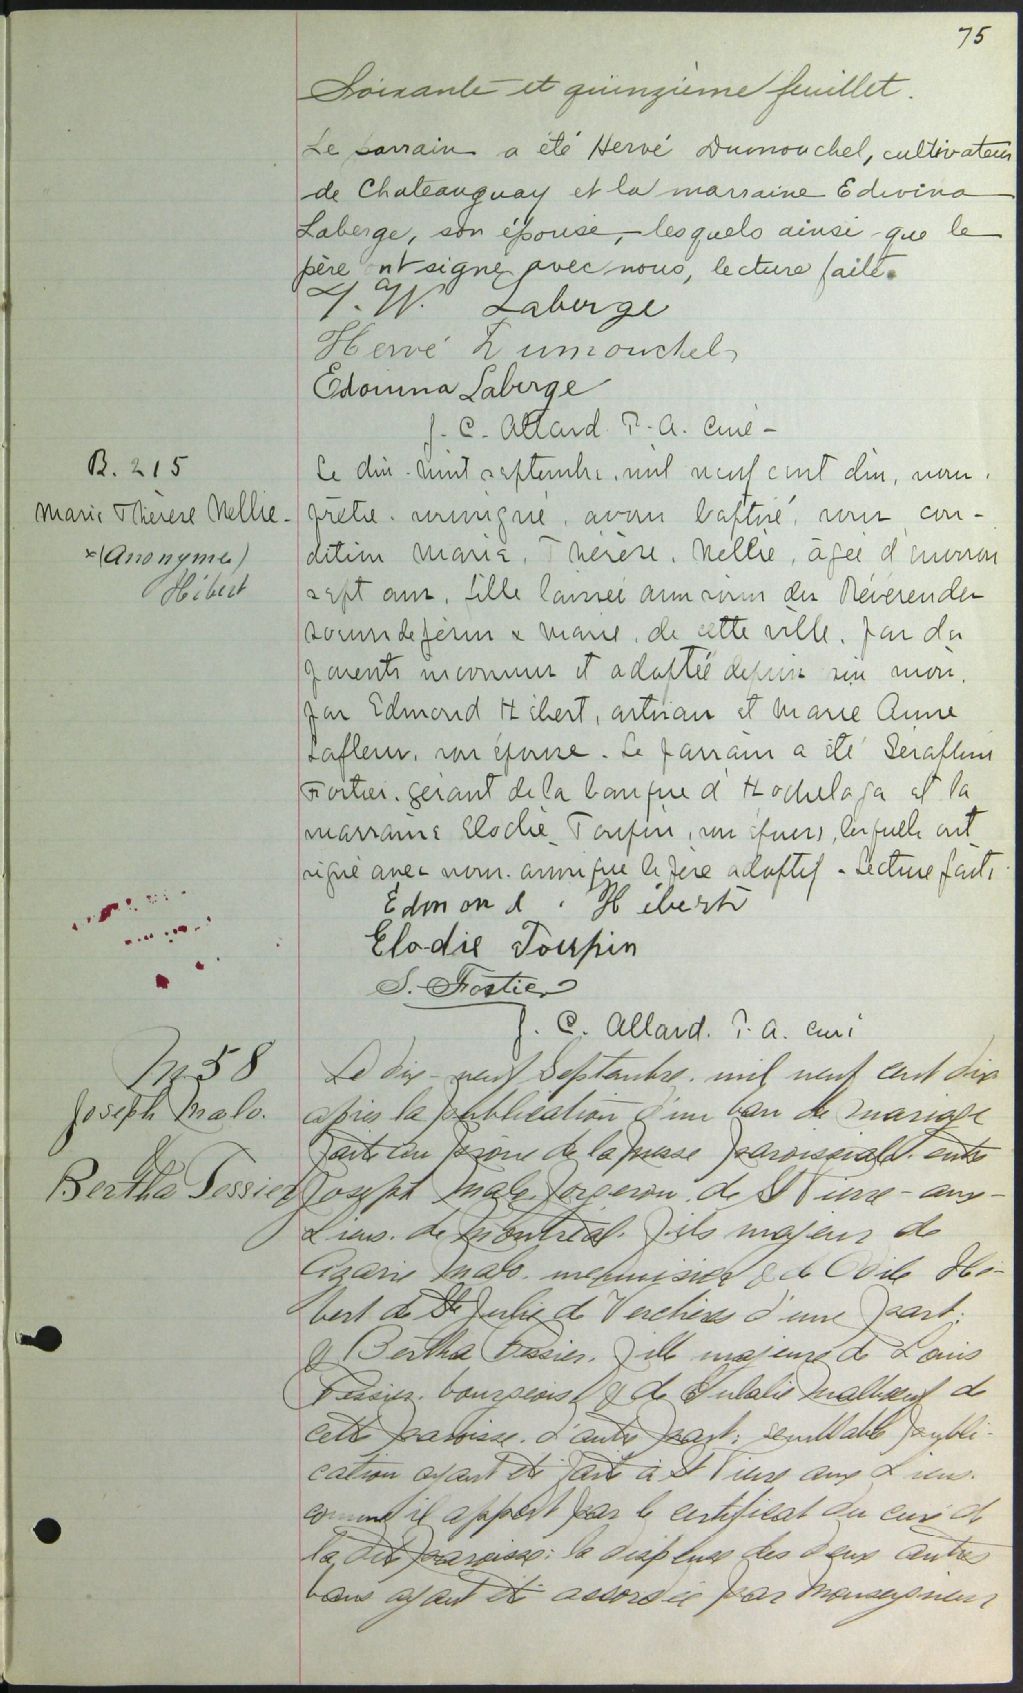 75
Soixante et quinzième feuillet.
Le parrain a été Hervé Dumouchel, cultivateur
de Chateauguay et la marraine Edwina
Laberge, son épouse, lesquels ainsi que le
père ont signé avec nous, lecture faite.
Laberge
Hervé Dumouchel
Edouina Laberge
J. C. Allard P. A. curé
B. 215
Marie Thérèse Nellie
(Anonyme)
Hébert
Le dix-huit septembre, mil neuf cent dix, nous,
prêtre soussigné, avons baptisé, sous con-
dition Marie, Thérèse, Nellie, âgée d'environ
sept ans, fille laissée aux soins des Révérendes
soeurs de Jésus & Marie, de cette ville, par des
parents inconnus et adoptée depuis six mois,
par Edmond Hébert, artisan et Marie Anne
Lafleur, son épouse. Le parrain a été Séraphin
Fortier, gérant de la banque d'Hochelaga et la
marraine Elodie Toupin, son épouse, lesquels ont
signé avec nous ainsi que le père adoptif. Lecture faite
Edmond Hébert
Elodie Toupin
S. Fortier
J. C. Allard. P. A. curé
M. 58
Joseph Malo.
&
Bertha Tessier
Le dix-neuf Septembre, mil neuf cent dix
après la publication d'un ban de mariage
faite au prône de la messe paroissiale entre
Joseph Malo, forgeron, de St Pierre-aux-
Liens, de Montréal, fils majeur de
Azarie Malo, menuisier & de Odile Hé-
bert de Ste Julie de Verchères d'une part;
& Bertha Tessier, fille majeure de Louis
Tessier, bourgeois & de Eulalie Malboeuf de
cette paroisse, d'autre part; semblable publi-
cation ayant été faite à St Pierre aux Liens
comme il appert par le certificat du curé de
la dite paroisse; la dispense des deux autres
bans ayant été accordée par Monseigneur